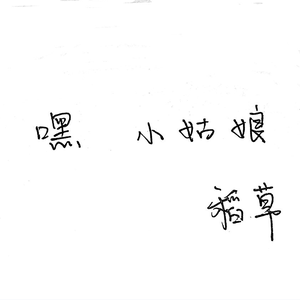 嘿 小姑娘
稻草